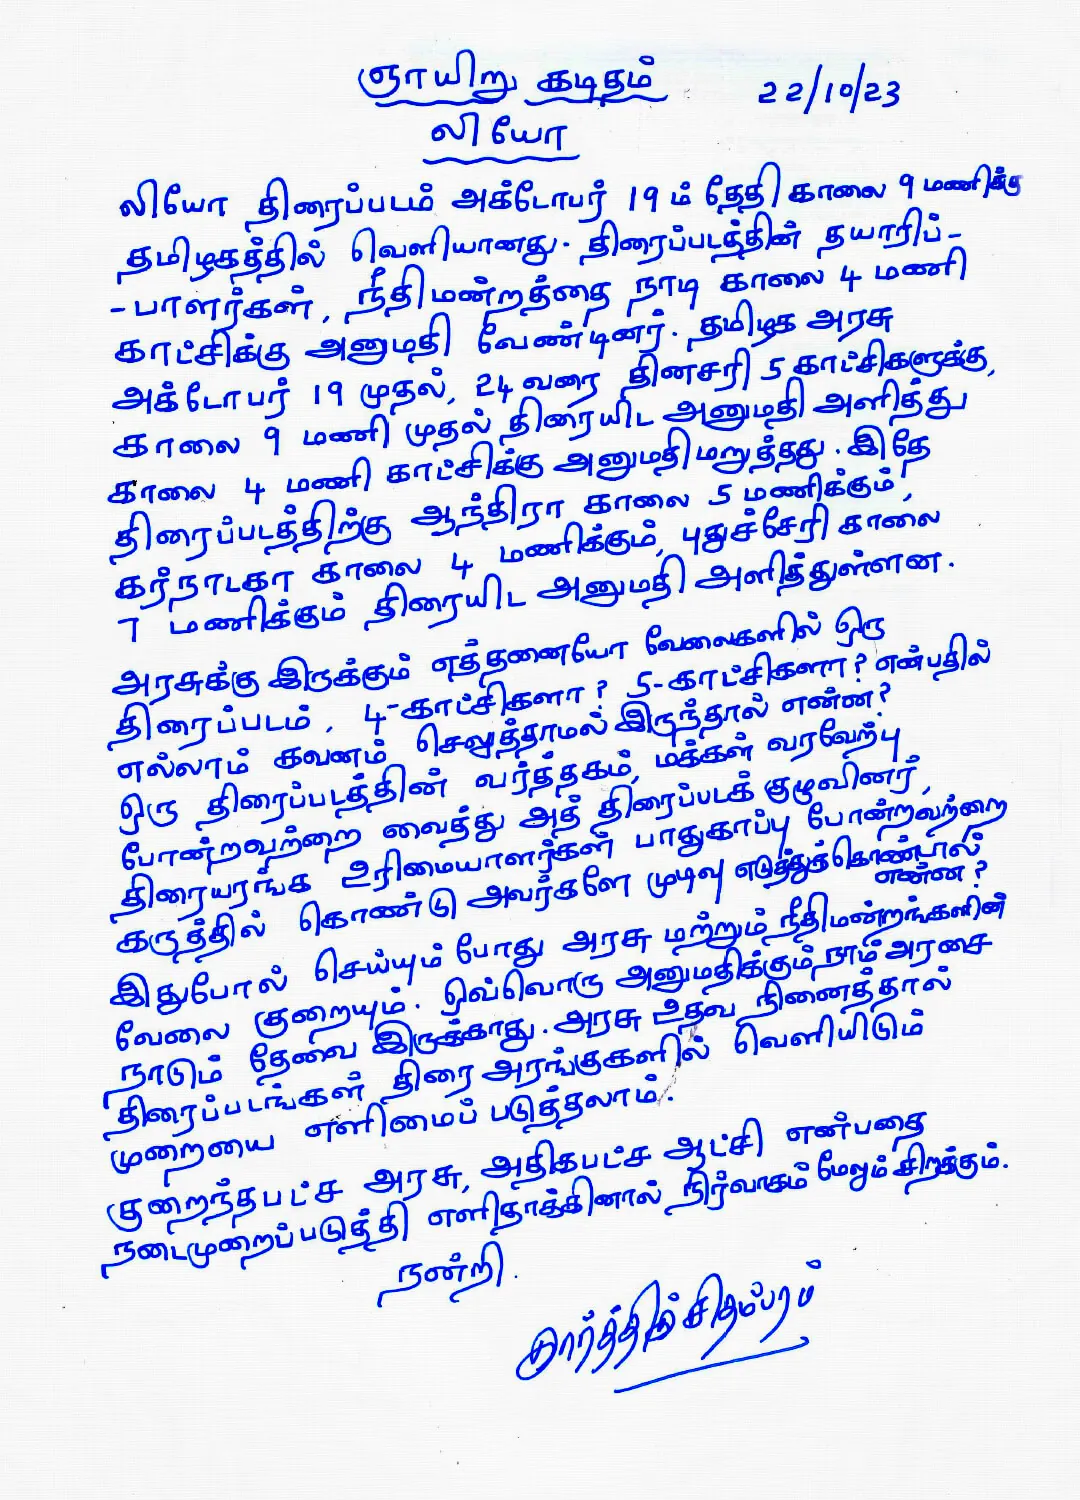 ஞாயிறு கடிதம் 22/10/23
லியோ
லியோ திரைப்படம் அக்டோபர் 19ம் தேதி காலை 9 மணிக்கு
தமிழகத்தில் வெளியானது. திரைப்படத்தின் தயாரிப்-
-பாளர்கள், நீதிமன்றத்தை நாடி காலை 4 மணி
காட்சிக்கு அனுமதி வேண்டினர். தமிழக அரசு
அக்டோபர் 19 முதல், 24 வரை தினசரி 5 காட்சிகளுக்கு,
காலை 9 மணி முதல் திரையிட அனுமதி அளித்து
காலை 4 மணி காட்சிக்கு அனுமதி மறுத்தது. இதே
திரைப்படத்திற்கு ஆந்திரா காலை 5 மணிக்கும்,
கர்நாடகா காலை 4 மணிக்கும், புதுச்சேரி காலை
7 மணிக்கும் திரையிட அனுமதி அளித்துள்ளன.
அரசுக்கு இருக்கும் எத்தனையோ வேலைகளில் ஒரு
திரைப்படம், 4-காட்சிகளா? 5-காட்சிகளா? என்பதில்
எல்லாம் கவனம் செலுத்தாமல் இருந்தால் என்ன?
ஒரு திரைப்படத்தின் வர்த்தகம், மக்கள் வரவேற்பு
போன்றவற்றை வைத்து அத் திரைப்படக் குழுவினர்,
திரையரங்க உரிமையாளர்கள் பாதுகாப்பு போன்றவற்றை
கருத்தில் கொண்டு அவர்களே முடிவு எடுத்துக்கொண்டால்
என்ன?
இதுபோல் செய்யும் போது அரசு மற்றும் நீதிமன்றங்களின்
வேலை குறையும். ஒவ்வொரு அனுமதிக்கும் நாம் அரசை
நாடும் தேவை இருக்காது. அரசு உதவ நினைத்தால்
திரைப்படங்கள் திரை அரங்குகளில் வெளியிடும்
முறையை எளிமைப் படுத்தலாம்.
குறைந்தபட்ச அரசு, அதிகபட்ச ஆட்சி என்பதை
நடைமுறைப்படுத்தி எளிதாக்கினால் நிர்வாகம் மேலும் சிறக்கும்.
நன்றி.
கார்த்திக்சிதம்பரம்